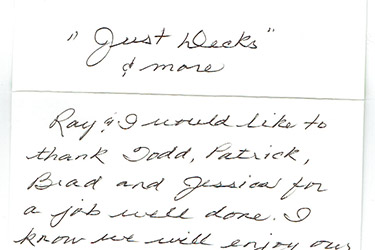 "Just Decks"
& more
Ray & I would like to
thank Todd, Patrick,
Brad and Jessica for
a job well done. I
know we will enjoy our